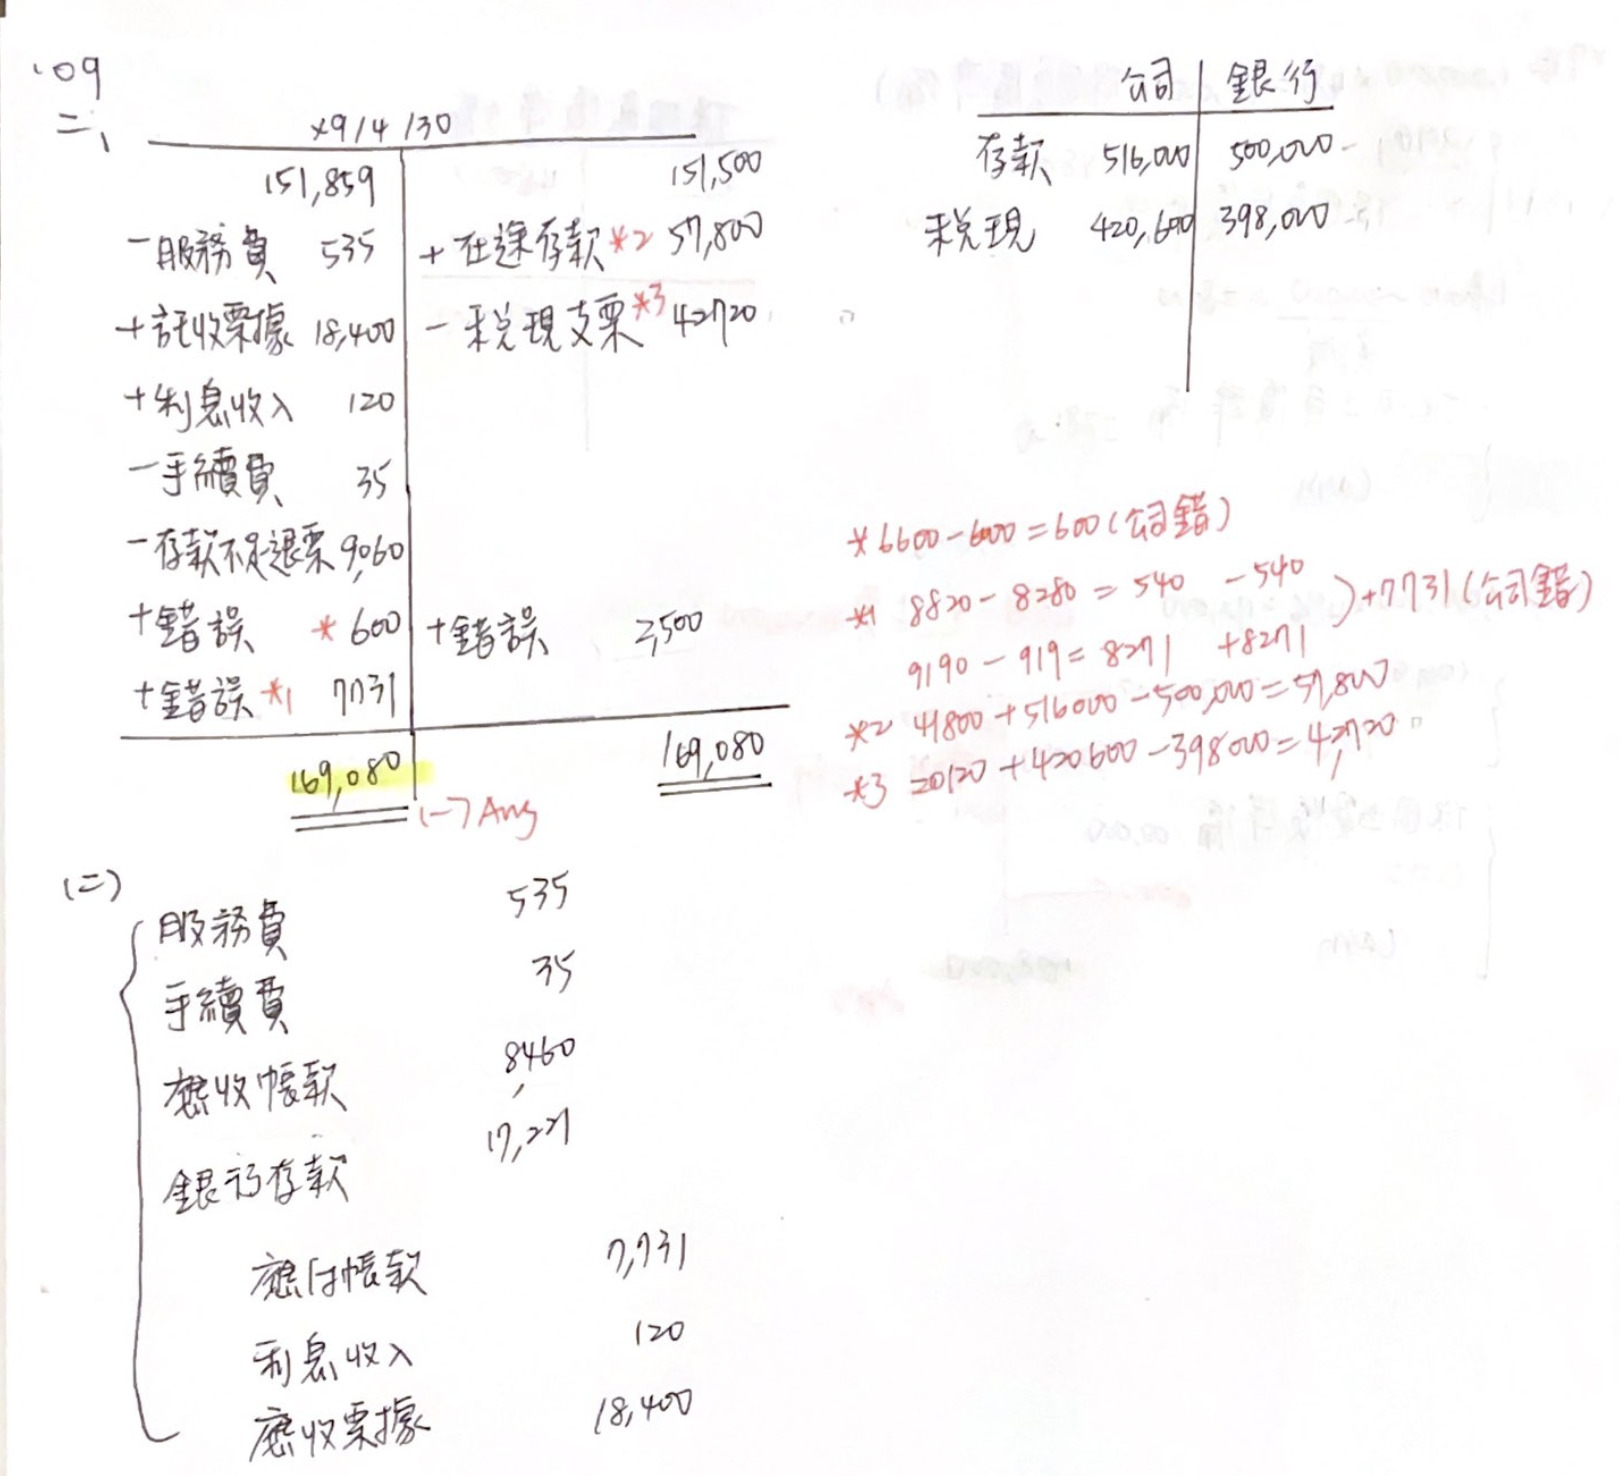 '09
二、
x9/4/30
151,859 151,500
-服務費 535 +在途存款*2 57,800
+託收票據 18,400 -未兌現支票*3 42720
+利息收入 120
-手續費 35
-存款不足退票 9,060
+錯誤 * 600 +錯誤 2,500
+錯誤 *1 7731
169,080 169,080
(一) Ans
公司 銀行
存款 516,000 500,000
未兌現 420,600 398,000
* 6600-6000=600(公司錯)
*1 8820-8280=540 -540
9190-919=8271 +8271
)+7731(公司錯)
*2 41800+516000-500,000=57,800
*3 20120+420600-398000=42,720
(二)
服務費 535
手續費 35
應收帳款 8,460
銀行存款 17,221
應付帳款 7,731
利息收入 120
應收票據 18,400